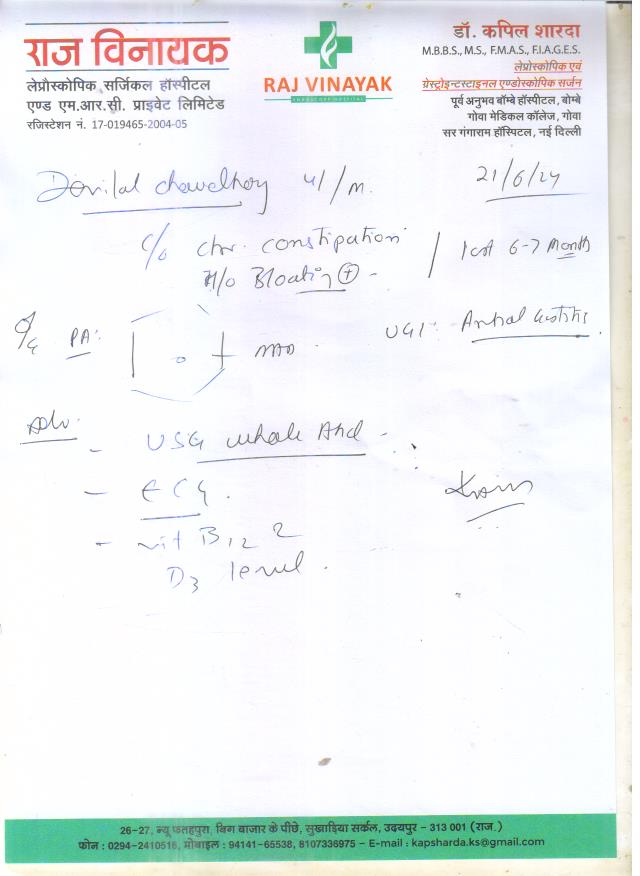 राज विनायक
लेप्रौस्कोपिक, सर्जिकल हॉस्पीटल
एण्ड एम.आर.सी. प्राइवेट लिमिटेड
रजिस्टेशन नं. 17-019465-2004-05
RAJ VINAYAK
डॉ. कपिल शारदा
M.B.B.S., M.S., F.M.A.S., F.I.A.G.E.S.
लेप्रोस्कोपिक एवं
ग्रेस्ट्रोइन्टस्टाइनल एण्डोस्कोपिक सर्जन
पूर्व अनुभव बॉम्बे हॉस्पीटल, बोम्बे
गोवा मेडिकल कॉलेज, गोवा
सर गंगाराम हॉस्पिटल, नई दिल्ली
chowdhory /m. 21/6/24
c/o chr. constipation / last 6-7 Month
H/o Bloating (+) -
O/E PA:
UGI: Antral Gastritis.
Adv.
- USG whole Abd -
- ECG.
- vit B12 2
D3 level.
26-27, न्यू फतहपुरा, बिग बाजार के पीछे, सुखाड़िया सर्कल, उदयपुर - 313 001 (राज.)
फोन : 0294-2410516, मोबाइल : 94141-65538, 8107336975 - E-mail : kapsharda.ks@gmail.com